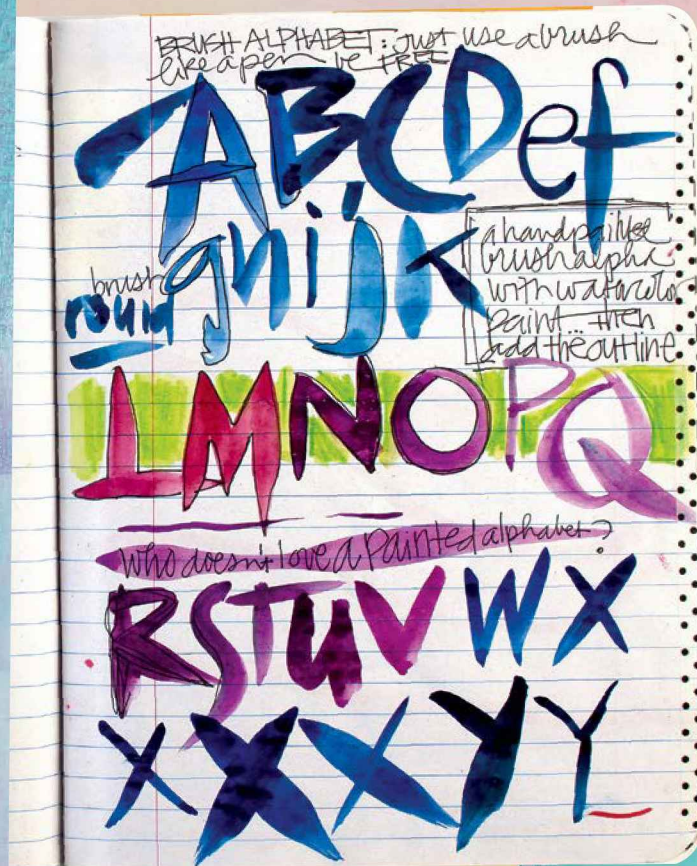 BRUSH ALPHABET: just use a brush
like a pen be FREE
ABCDef
ghijK
brush
round
a handpainted
brush alpha
with watercolor
paint... then
add the outline
LMNOPQ
who doesn't love a painted alphabet?
RSTUVWX
XXXYY